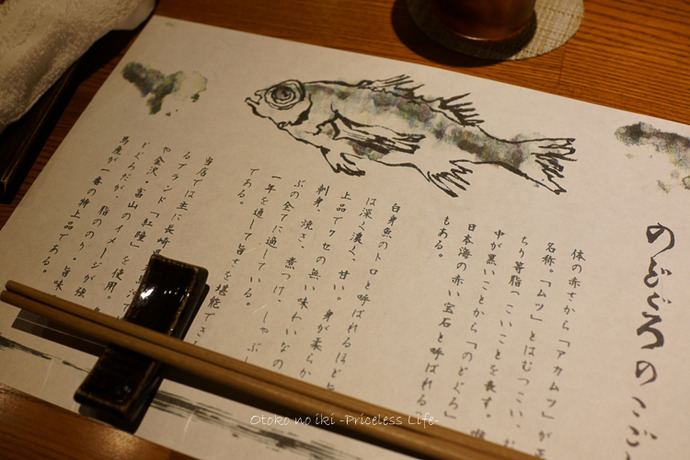 のどぐろのこ
体の赤さから「アカムツ」が
名称。「ムツ」とはむつっこい、
ちり等脂っこいことを表す。
中が黒いことから「のどぐろ」
日本海の赤い宝石と呼ばれる
もある。
白身魚のトロと呼ばれるほど
は深く濃く、甘い。身が柔らか
上品でクセの無い味わいなの
刺身、焼き、煮つけ、しゃぶし
ぶの全てに適している。
一年を通して旨さを堪能でき
である。
当店では主に長崎県
るブランド「紅瞳」を使用。
や金沢、富山のイメージが強
どぐろだが、脂ののり、旨味
馬産が一番の特上品である。
Otoko no iki -Priceless Life-